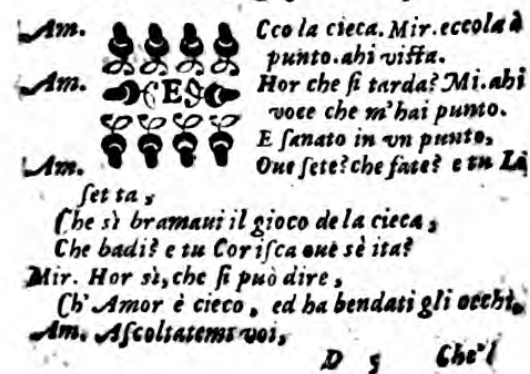 Am. ECco la cieca. Mir. eccola à
punto. ahi vista.
Am. Hor che si tarda? Mi. ahi
voce che m'hai punto.
E sanato in vn punto,
Am. Oue sete? che fate? e tu Li
set ta,
Che sì bramaui il gioco de la cieca,
Che badi? e tu Corisca oue sè ita?
Mir. Hor sì, che si può dire,
Ch'Amor è cieco, ed ha bendati gli occhi.
Am. Ascoltatemi voi,
D 5 Che'l